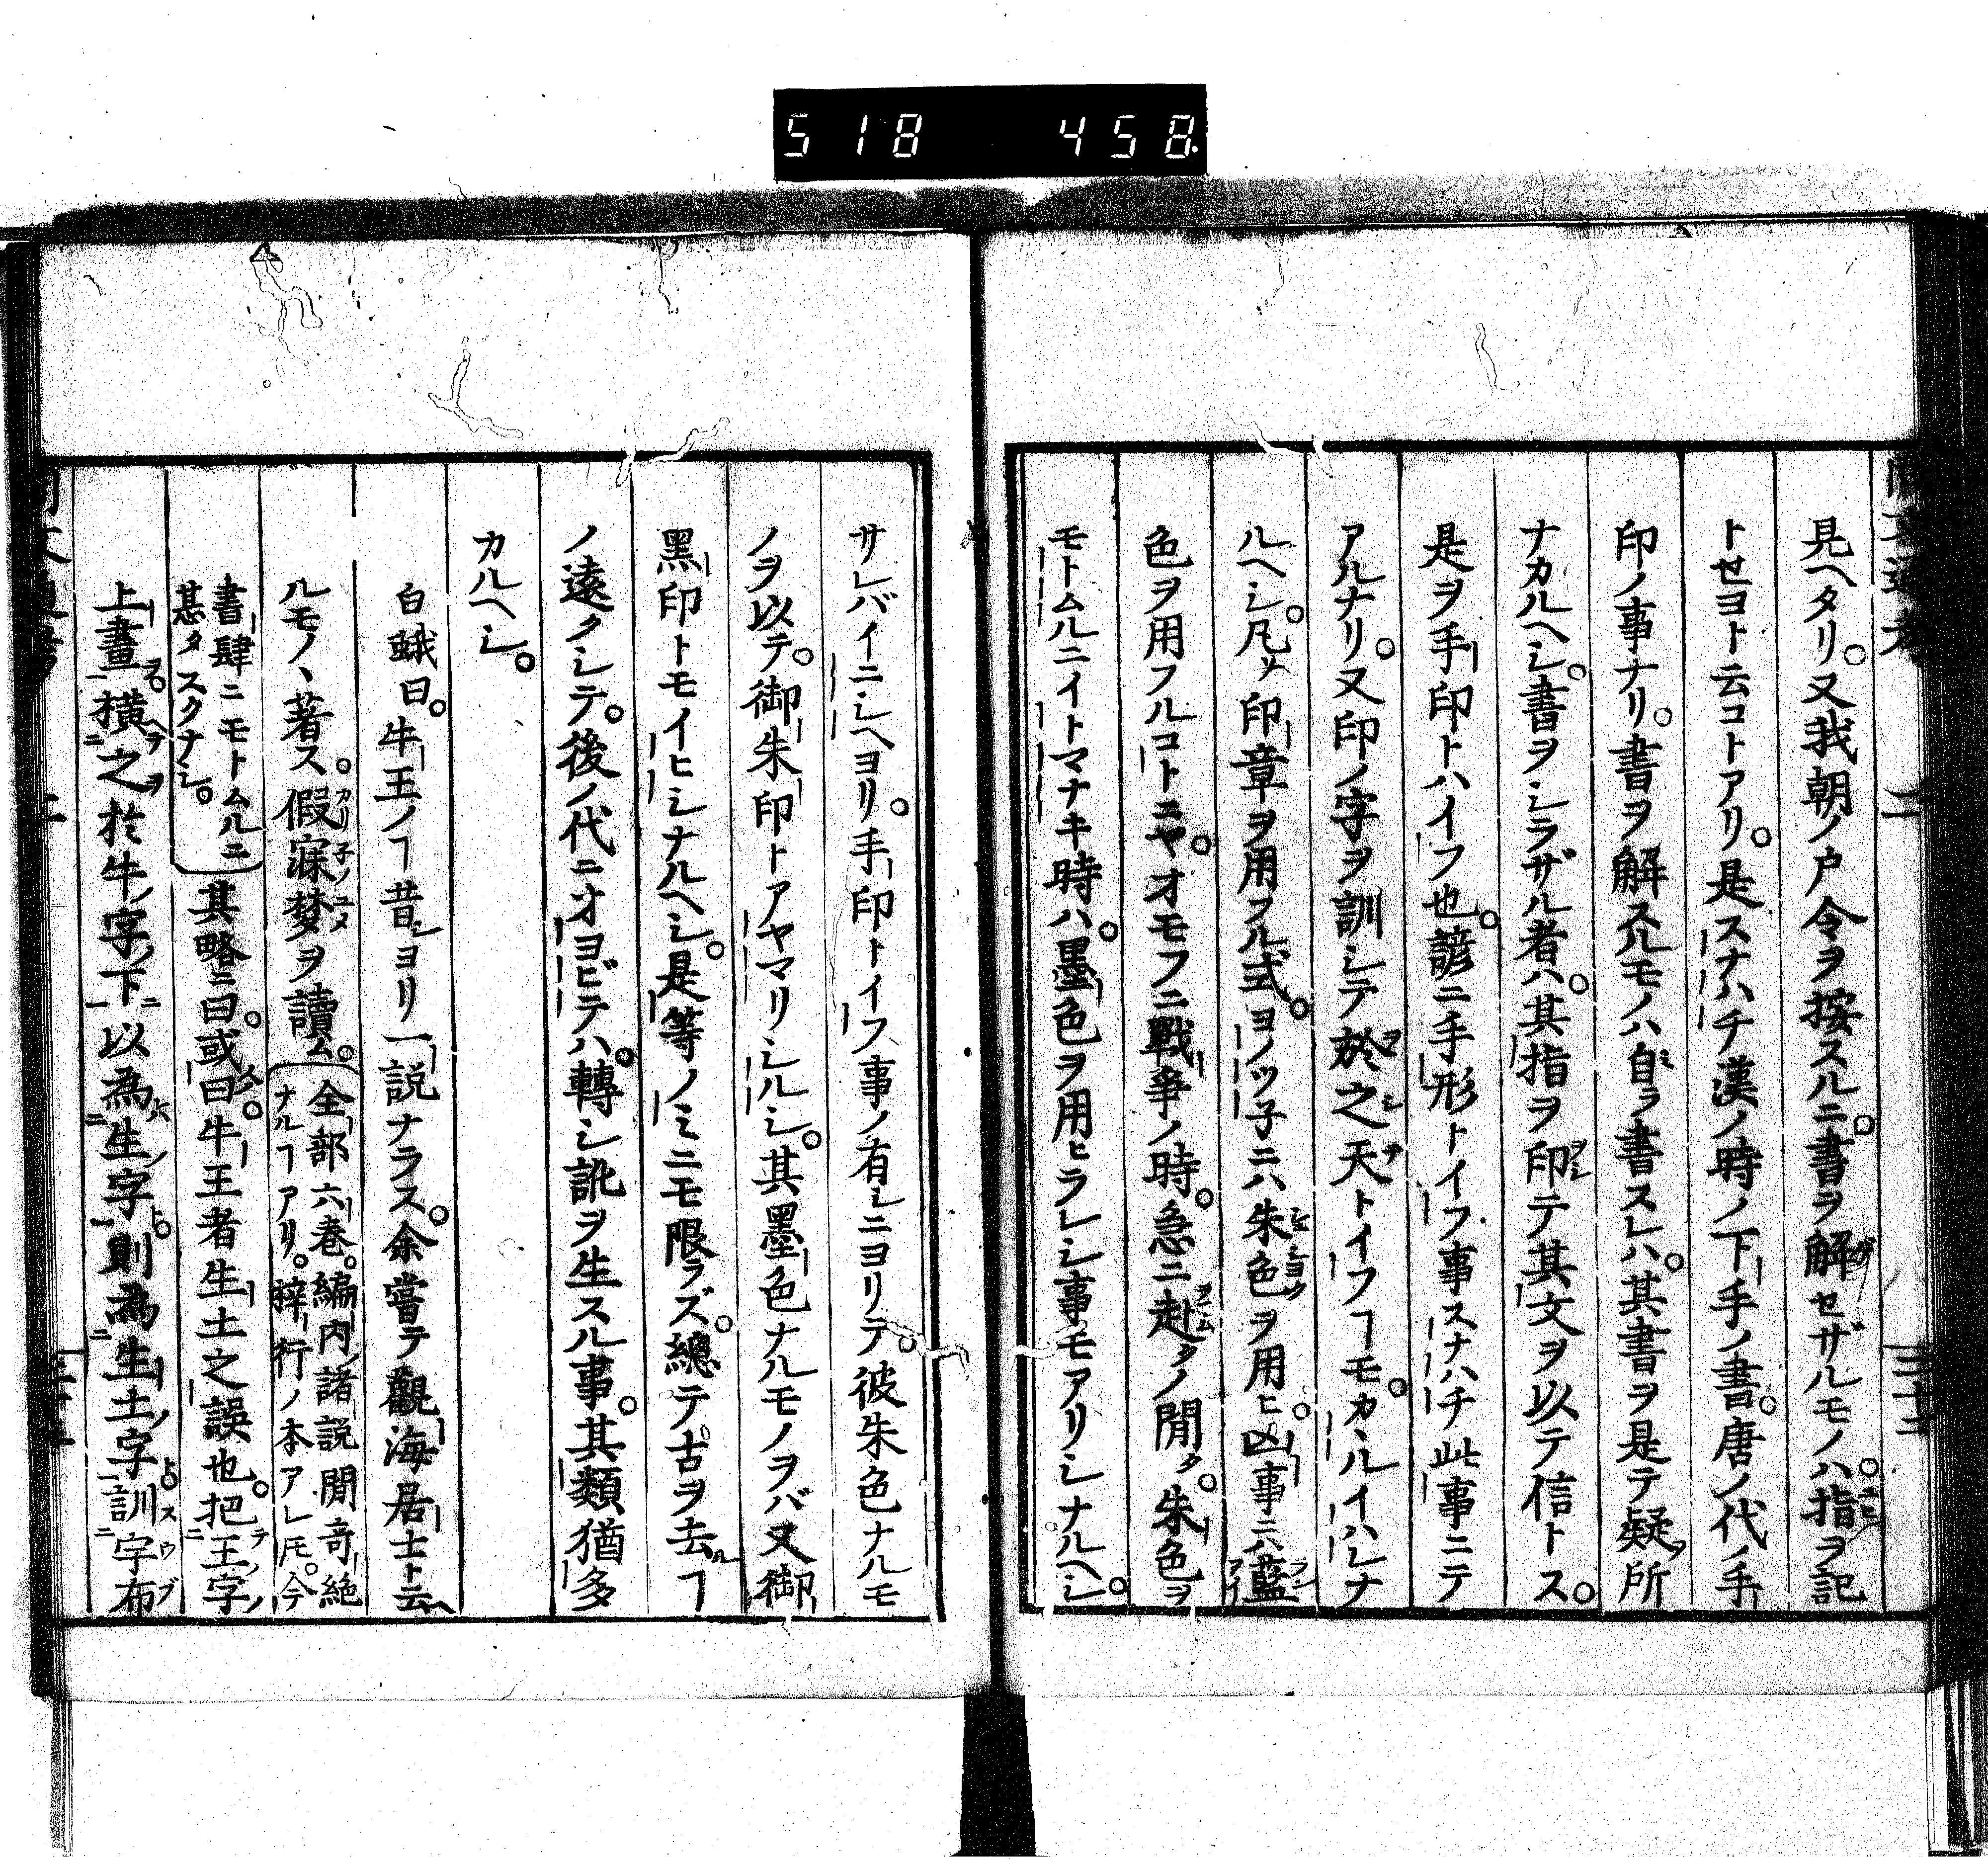 518 458.
見ヘタリ。又我朝ノ戸令ヲ按スルニ。書ヲ解セザルモノハ。指ヲ記
トセヨト云コトアリ。是スナハチ漢ノ時ノ下手ノ書。唐ノ代ノ手
印ノ事ナリ。書ヲ解スルモノハ自ラ書スレハ。其書ヲ是テ疑フ所
ナカルヘシ。書ヲシラザル者ハ。其指ヲ印テ其文ヲ以テ信トス。
是ヲ手印トハイフ也。諺ニ手形トイフ事スナハチ此事ニテ
アルナリ。又印ノ字ヲ訓シテ於之天トイフヿモ。カヽルイハレナ
ルヘシ。凡ソ印章ヲ用フル式。ヨノツ子ニハ朱色ヲ用ヒ。凶事ニハ藍
色ヲ用フルコトニヤ。オモフニ戰爭ノ時。急ニ赴クノ間タ。朱色ヲ
モトムルニイトマナキ時ハ。墨色ヲ用ヒラレシ事モアリシナルヘシ。
サレバイニシヘヨリ。手印トイフ事ノ有シニヨリテ。彼朱色ナルモ
ノヲ以テ。御朱印トアヤマリシルシ。其墨色ナルモノヲバ又御
黑印トモイヒシナルヘシ。是等ノミニモ限ラズ。總テ古ヲ去ルヿ
ノ遠クシテ。後ノ代ニオヨビテハ。轉シ訛ヲ生スル事。其類猶多
カルヘシ。
白蛾曰。牛王ノヿ昔シヨリ一説ナラス。余嘗テ觀海居士ト云ヘ
ルモノヽ著ス。假寐夢ヲ讀ム。全部六巻。編内諸説聞竒絶
ナルヿアリ。梓行ノ本アレ𪜈。今
書肆ニモトムルニ
甚タスクナシ。其略ニ曰。或曰。牛王者生土之誤也。把王字
上畫。横之於牛字下以為生字。則為生土字訓字布